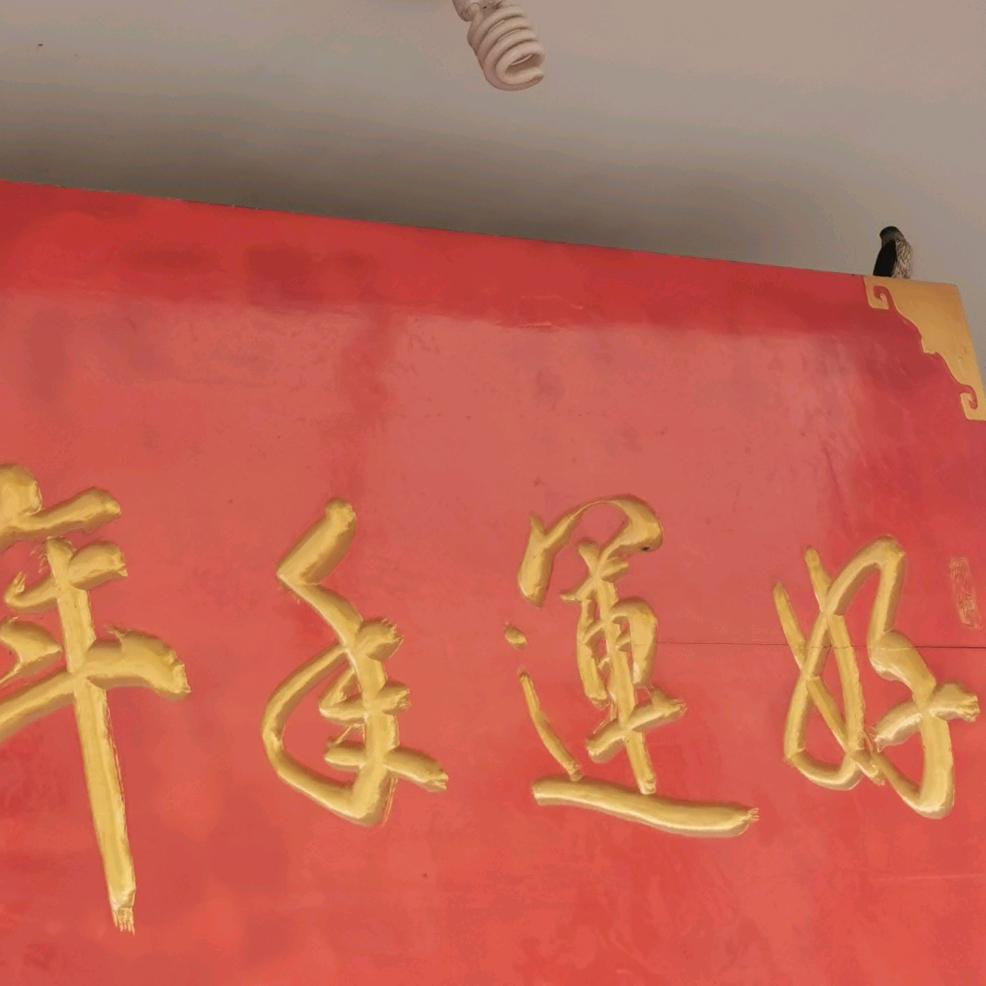 好運年年